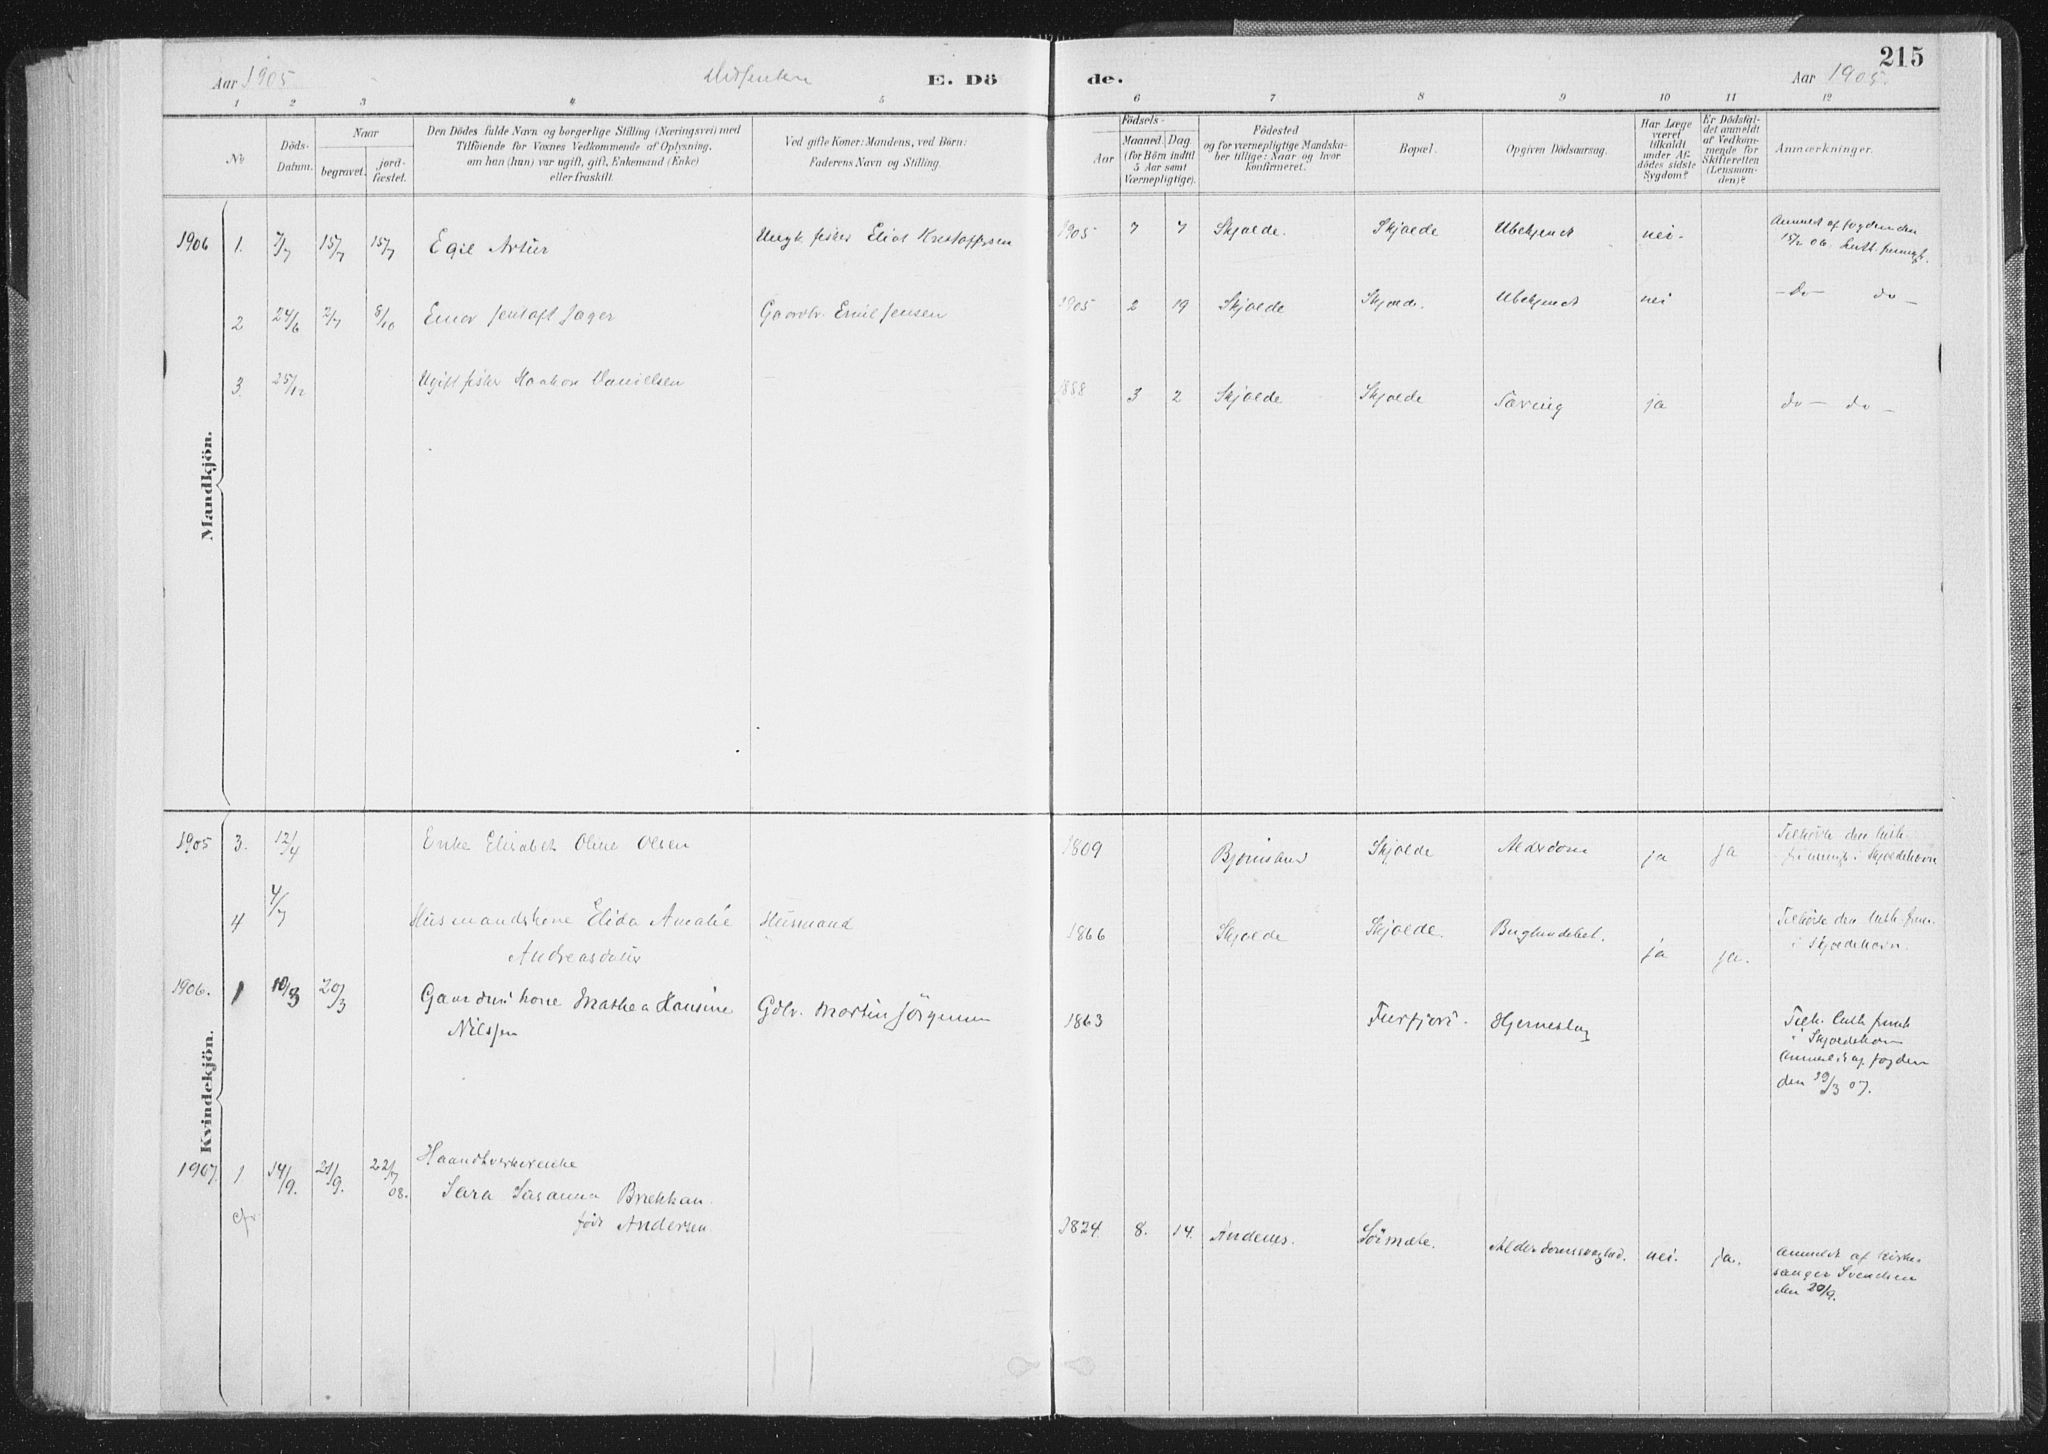 215
Aar 1905 E. Dö de. Aar 1905.
1 2 3 4 5 6 7 8 9 10 11 12
No
Döds-Datum.
Naar
begravet.
jord-fæstet.
Den Dödes fulde Navn og borgerlige Stilling (Næringsvei) med
Tilföiende for Voxnes Vedkommende af Oplysning,
om han (hun) var ugift, gift, Enkemand (Enke)
eller fraskilt.
Ved gifte Koner: Mandens, ved Börn:
Faderens Navn og Stilling.
Födsels-
Aar
Maaned. Dag
(for Börn indtil
5 Aar samt
Værnepligtige).
Födested
og for værnepligtige Mandska-
ber tillige: Naar og hvor
konfirmeret.
Bopæl.
Opgiven Dödsaarsag.
Har Læge
været
tilkaldt
under Af-
dödes sidste
Sygdom?
Er Dödsfal-
det anmeldt
af Vedkom-
mende for
Skifteretten
(Lensman-
den)?
Anmærkninger.
Mandkjön.
1906 1. 7/7 15/7 15/7 Egil Artur Ungk fisker Eliot Kristoffersen 1905 7 7 Skjolde. Skjolde Ubekjendt nei. Anmeldt af fogden den
15/2 06.
2 24/6 2/7 8/10 Einar Jentoft Jager Gaardbr. Emil Jensen 1905 2 19 Skjolde Skjolde. Ubekjendt nei - do - do -
3. 25/12 Ugift fisker Haakon Danielsen 1888 3 2 Skjolde Skjolde Tæring ja do - do -
Kvindekjön.
1905 3. 12/4 Enke Elisabet Oline Olsen 1809 Skjolde Alderdom ja ja Tilhørte den luth.
frimengh. i Skjoldehavn
4 4/7 Husmandskone Elida Amalie Husmand 1866 Skjolde Skjolde. ja ja. Tilhørte den luth. frim.
Andreasdatter i Skjoldehavn.
1906. 1 10/3 20/3 Gaardm kone Mathea Hansine Gdbr. Martin Jörgensen 1863 Hjerneslag Tilh. luth frimh
Nilssen i Skjoldehavn
Anmeldt af fogden
den 19/3 07.
1907. 1 14/9. 21/9. 22/7 08. Haandverkerenke
Sara Susanna Brekkan
født Andersen
1824 8. 14. Andenes. Alderdomssvaghed. nei. ja. Anmeldt af kirke-
sanger Svendsen
den 20/9.